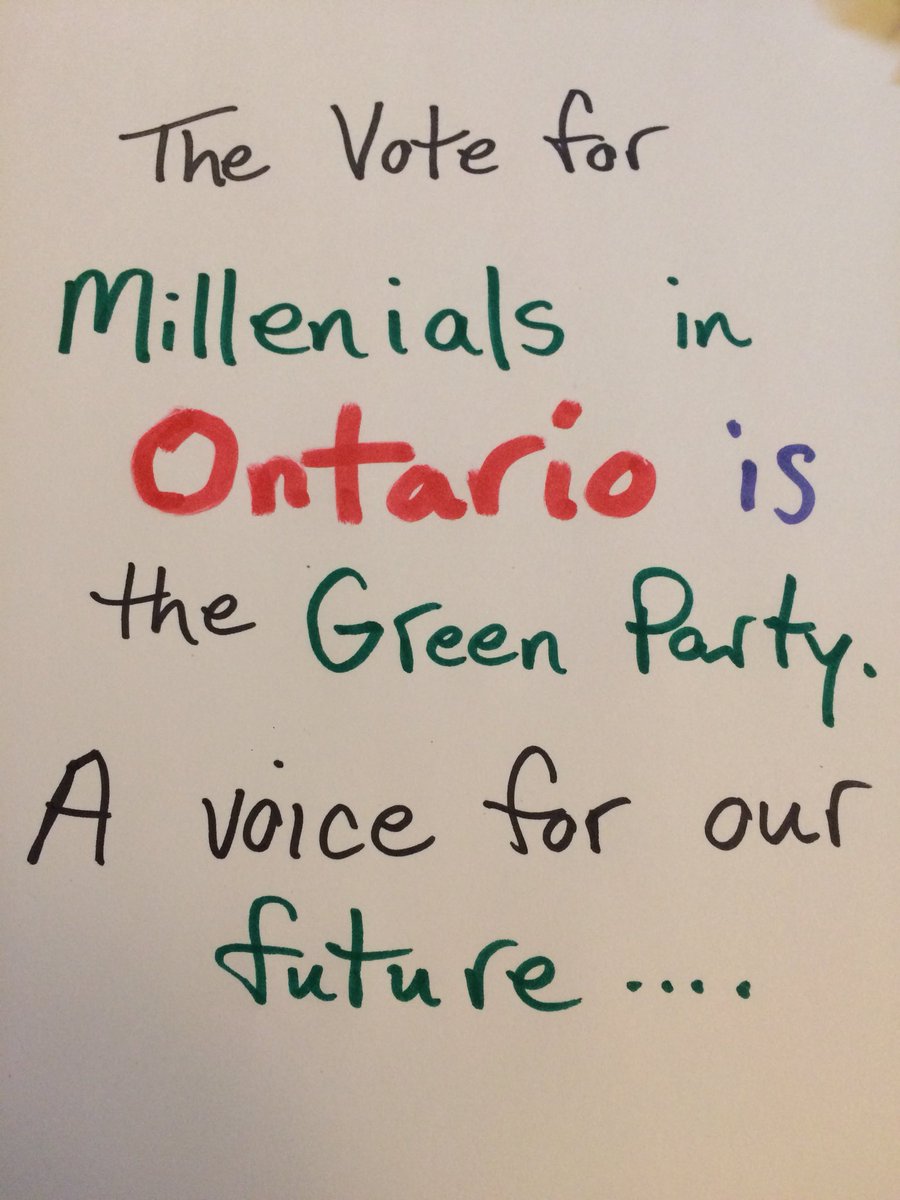 The Vote for
Millenials in
Ontario is
the Green Party.
A voice for our
future ....